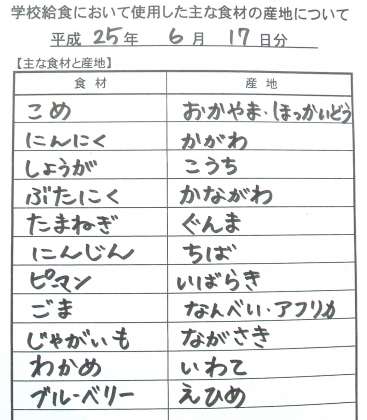 学校給食において使用した主な食材の産地について
平成 25年 6月 17日分
【主な食材と産地】
食材 産地
こめ おかやま・ほっかいどう
にんにく かがわ
しょうが こうち
ぶたにく かながわ
たまねぎ ぐんま
にんじん ちば
ピーマン いばらき
ごま なんべい・アフリカ
じゃがいも ながさき
わかめ いわて
ブルーベリー えひめ